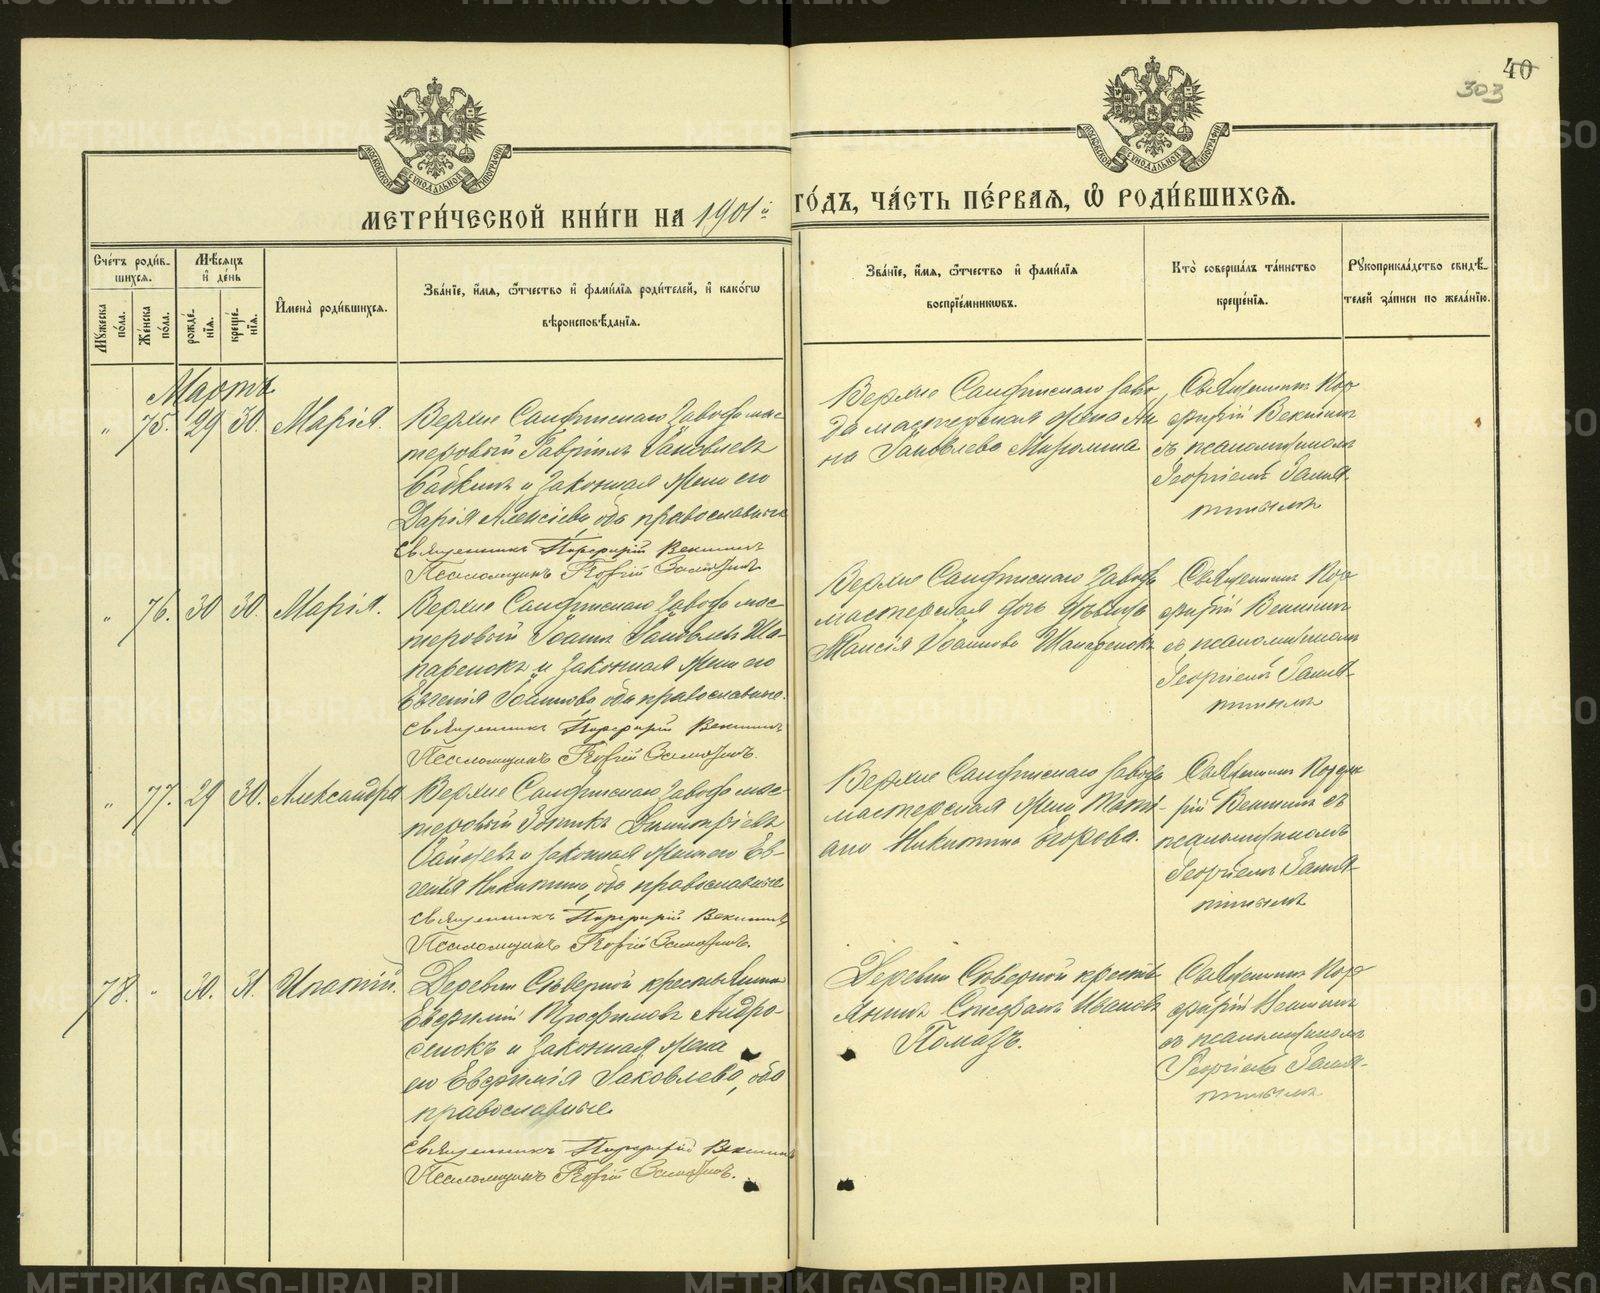 40
303
МЕТРИ́ЧЕСКОЙ КНИ́ГИ НА 1901й ГО́ДЪ, ЧА́СТЬ ПЕ́РВАЯ, Ѽ РОДИ́ВШИХСЯ.
Сче́тъ роди́в-
шихся.
Мꙋжеска по́ла.
Же́нска по́ла.
Мѣ́сяцъ
и҆ де́нь
рожде́-
нїя.
креще́-
нїя.
И҆мена̀ роди́вшихся.
Зва́нїе, и҆́мя, ѻ҆́тчество и҆ фами́лїя роди́телей, и҆ како́гѡ
вѣроисповѣ́данїя.
Зва́нїе, и҆́мя, ѻ҆́тчество и҆ фами́лїя
воспрїе́мниковъ.
Кто̀ соверша́лъ та́инство
креще́нїя.
Рꙋкоприкла́дство свидѣ́-
телей за́писи по жела́нїю.
Мартъ
„ 75. 29 30. Марія.
Верхне Саифтскаго завода мас-
теровый Гавріилъ Іаковлевъ
Бабкинъ и законная жена его
Дарія Алексіева, оба православные
Священникъ Порфирій Векшинъ
Псаломщикъ Георгій
Верхне Саифтскаго заво
да мастерская жена Ан
на Іаковлева
Священникъ Пор
фирій Векшинъ
съ псаломщикомъ
Георгіемъ
„ 76. 30 30. Марія.
Верхне Саифтскаго завода мас-
теровый Іоаннъ Іаковлевъ Ша-
паренокъ и законная жена его
Евгенія Іоаннова, оба православные.
Священникъ Порфирій Векшинъ
Псаломщикъ Георгій
Верхне Саифтскаго завода
мастерская дочь дѣвица
Таисія Іоаннова Шапаренокъ
Священникъ Пор
фирій Векшинъ
съ псаломщикомъ
Георгіемъ
„ 77. 29 30. Александра
Верхне Саифтскаго завода мас-
теровый Димитріевъ
и законная жена его Ев-
генія Никитина, оба православные
Священникъ Порфирій Векшинъ
Псаломщикъ Георгій
Верхне Саифтскаго завода
мастерская жена Тать-
яна Никитина Егорова.
Священникъ Порфи
рій Векшинъ съ
псаломщикомъ
Георгіемъ
78. „ 30. 31. Ипатій.
Деревни Сѣверной крестьянинъ
Евфимій Трофимовъ Андро-
сенокъ и законная жена
его Евфимія Іаковлева, оба
православные.
Священникъ Порфирій Векшинъ
Псаломщикъ Георгій
Деревни Сѣверной кресть
янинъ Стефанъ Ивановъ
Помазъ.
Священникъ Пор
фирій Векшинъ
съ псаломщикомъ
Георгіемъ
METRIKI.GASO-URAL.RU